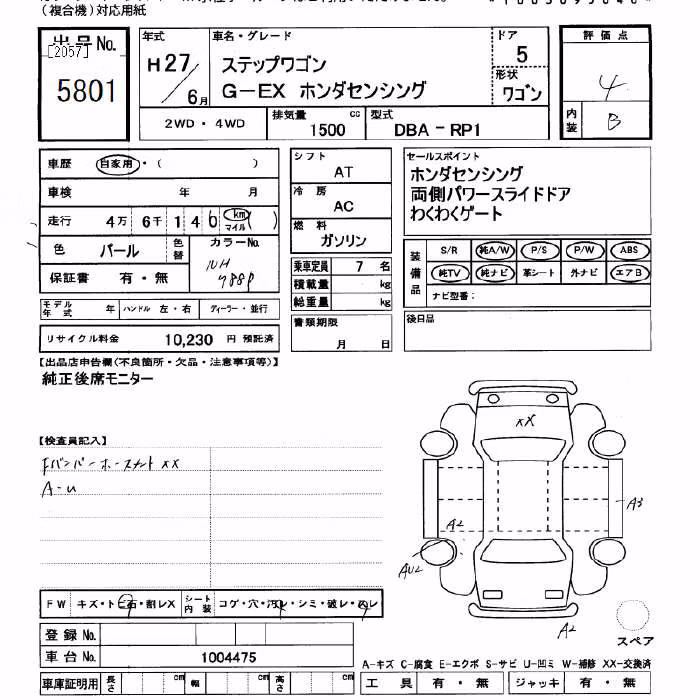 （複合機）対応用紙
出品No.
[2057]
5801
年式
H27/6月
車名・グレード
ステップワゴン
G－EX ホンダセンシング
ドア
5
形状
ワゴン
評価点
4
内装
B
2WD・4WD
排気量
1500 cc
型式
DBA－RP1
車歴 自家用・（ ）
車検 年 月
走行 4万 6千 1 4 0 km マイル ( )
色 パール 色替 カラーNo.
NH
788P
保証書 有・無
モデル年式 年 ハンドル 左・右 ディーラー・並行
リサイクル料金 10,230 円 預託済
シフト
AT
冷房
AC
燃料
ガソリン
乗車定員 7 名
積載量 kg
総重量 kg
書類期限
月 日
セールスポイント
ホンダセンシング
両側パワースライドドア
わくわくゲート
装備品
S/R 純A/W P/S P/W ABS
純TV 純ナビ 革シート 外ナビ エアB
ナビ型番：
後日品
【出品店申告欄（不良箇所・欠品・注意事項等）】
純正後席モニター
【検査員記入】
XX
A-U
XX
A3
A2
AU2
A2
スペア
FW キズ・トビ石・割レX シート内装 コゲ・穴・汚レ・シミ・破レ・スレ
登録No.
車台No. 1004475
車庫証明用 長さ cm 幅 cm 高さ cm
A-キズ C-腐食 E-エクボ S-サビ U-凹ミ W-補修 XX-交換済
工具 有・無 ジャッキ 有・無